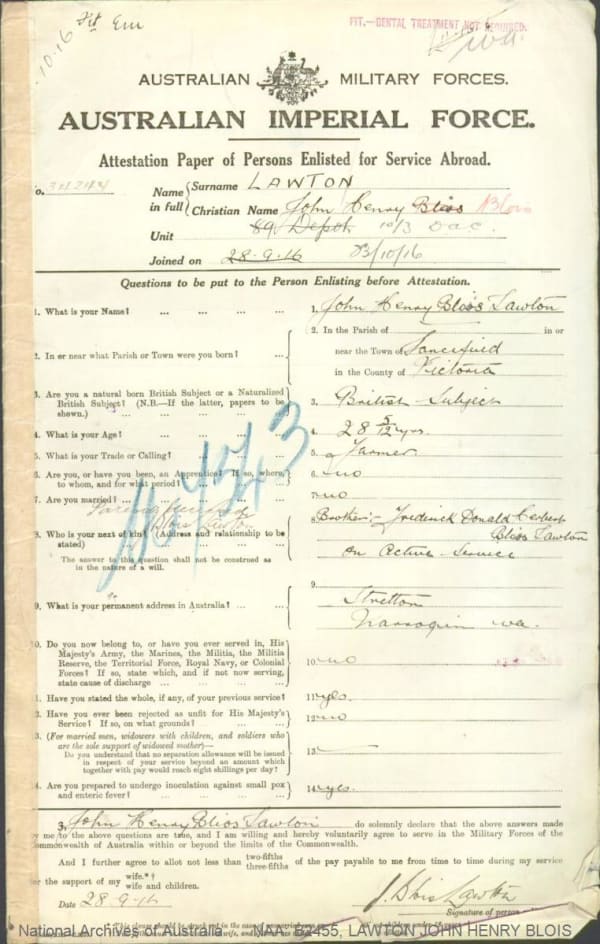 10.16 Fit
FIT.—DENTAL TREATMENT NOT REQUIRED.
AUSTRALIAN MILITARY FORCES.
AUSTRALIAN IMPERIAL FORCE.
Attestation Paper of Persons Enlisted for Service Abroad.
o.
Name in full { Surname LAWTON
Christian Name John Henry Blios Blois
Unit 89 Depot 10/3 D.A.C.
Joined on 28.9.16 23/10/16
Questions to be put to the Person Enlisting before Attestation.
1. What is your Name? ... ... ... ... 1. John Henry Blios Lawton
2. In or near what Parish or Town were you born? ... 2. In the Parish of in or
near the Town of Lancefield
in the County of Victoria
3. Are you a natural born British Subject or a Naturalized
British Subject? (N.B.—If the latter, papers to be
shown.) ... ... ... ... 3. British Subject
4. What is your Age? ... ... ... ... 4. 28 5/12 yrs.
5. What is your Trade or Calling? ... ... ... 5. a Farmer
6. Are you, or have you been, an Apprentice? If so, where,
to whom, and for what period? ... ... 6. no
7. Are you married? ... ... ... ... 7. no
Blois Lawton
8. Who is your next of kin? (Address and relationship to be
stated) ... ... ... 8. Brother:- Frederick Donald Herbert
Blios Lawton
on Active Service
The answer to this question shall not be construed as
in the nature of a will.
9. What is your permanent address in Australia? ... ... 9. Stretton
Narrogin W.A.
10. Do you now belong to, or have you ever served in, His
Majesty's Army, the Marines, the Militia, the Militia
Reserve, the Territorial Force, Royal Navy, or Colonial
Forces? If so, state which, and if not now serving,
state cause of discharge ... ... ... 10. no
1. Have you stated the whole, if any, of your previous service? 11. yes.
2. Have you ever been rejected as unfit for His Majesty's
Service? If so, on what grounds? ... ... 12. no
3. (For married men, widowers with children, and soldiers who
are the sole support of widowed mother)—
Do you understand that no separation allowance will be issued
in respect of your service beyond an amount which
together with pay would reach eight shillings per day? 13. —
4. Are you prepared to undergo inoculation against small pox
and enteric fever? ... ... ... ... 14. yes.
John Henry Blios Lawton do solemnly declare that the above answers made
by me to the above questions are true, and I am willing and hereby voluntarily agree to serve in the Military Forces of the
Commonwealth of Australia within or beyond the limits of the Commonwealth.
And I further agree to allot not less than two-fifths three-fifths of the pay payable to me from time to time during my service
for the support of my wife.*† wife and children.
Date 28.9.16 J. Blois Lawton
Signature of person
National Archives of Australia NAA: B2455, LAWTON JOHN HENRY BLOIS